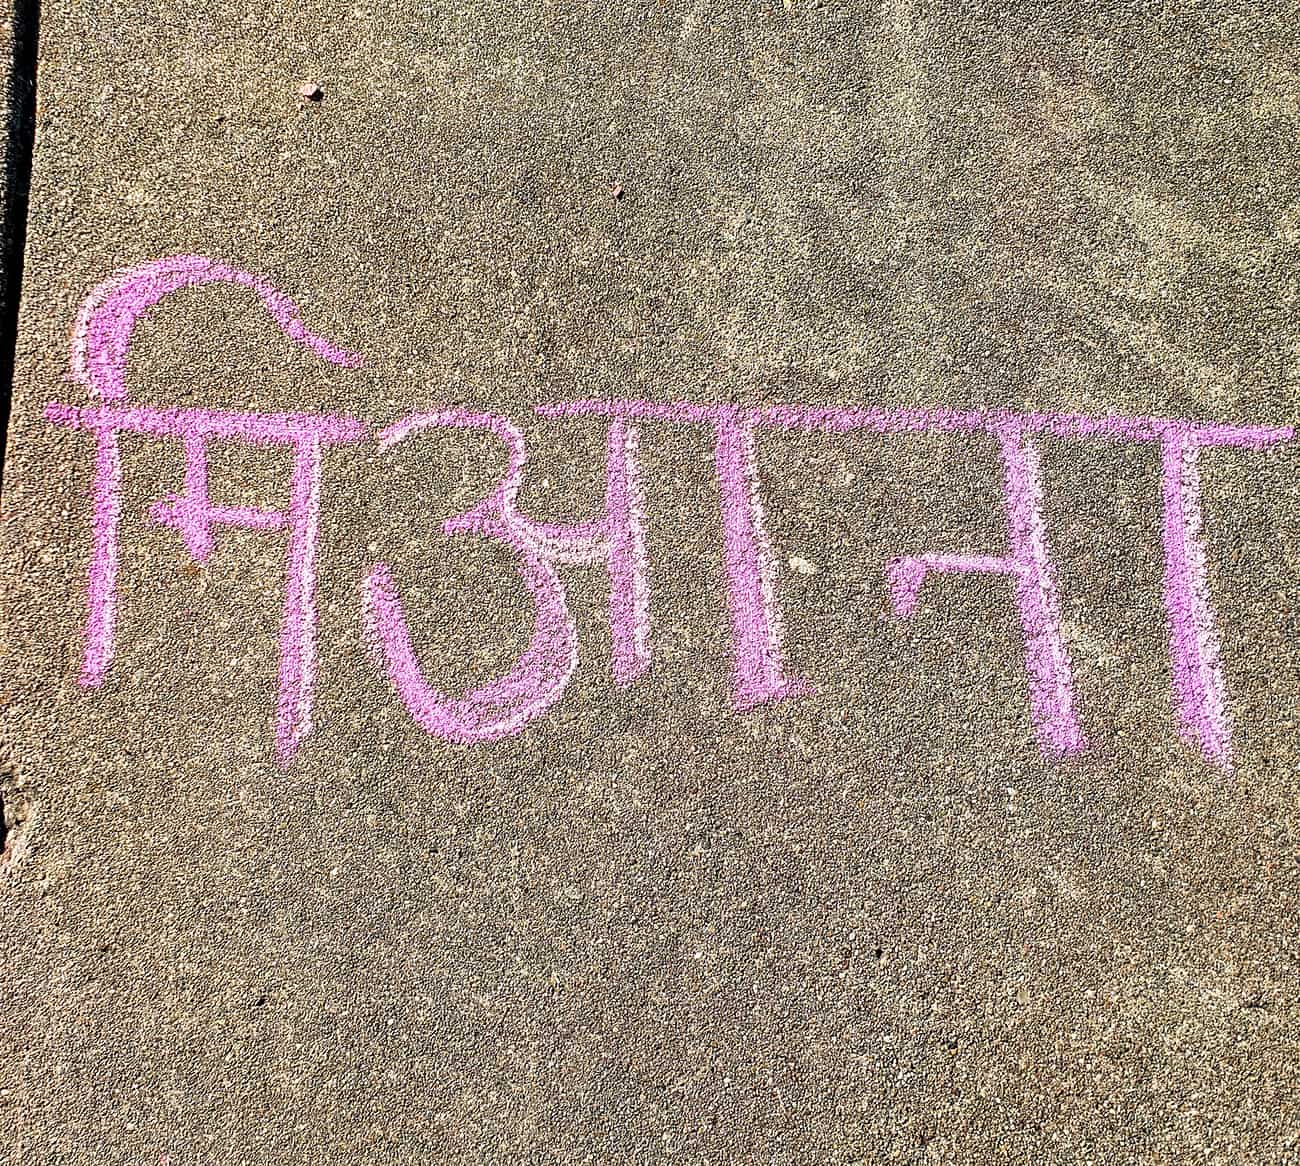 मिआना